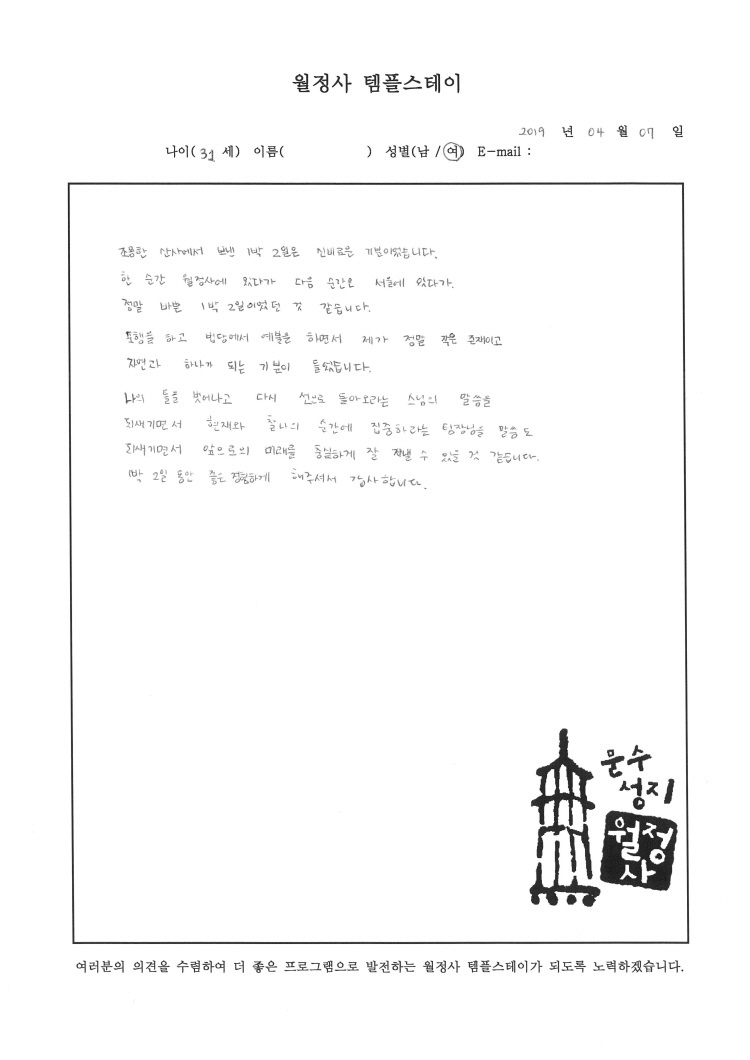 월정사 템플스테이
2019 년 04 월 07 일
나이( 31 세) 이름( ) 성별(남 / 여) E-mail :
조용한 산사에서 보낸 1박 2일은 신비로운 기분이었습니다.
한 순간 월정사에 있다가 다음 순간은 서울에 있다가.
정말 바쁜 1박 2일이었던 것 같습니다.
포행을 하고 법당에서 예불을 하면서 제가 정말 작은 존재이고
자연과 하나가 되는 기분이 들었습니다.
나의 틀을 벗어나고 다시 선으로 돌아오라는 스님의 말씀을
되새기면서 현재와 찰나의 순간에 집중하라는 팀장님을 말씀도
되새기면서 앞으로의 미래를 충실하게 잘 지낼 수 있을 것 같습니다.
1박 2일 동안 좋은 하게 해주셔서 감사합니다.
문수
성지
월정
사
여러분의 의견을 수렴하여 더 좋은 프로그램으로 발전하는 월정사 템플스테이가 되도록 노력하겠습니다.